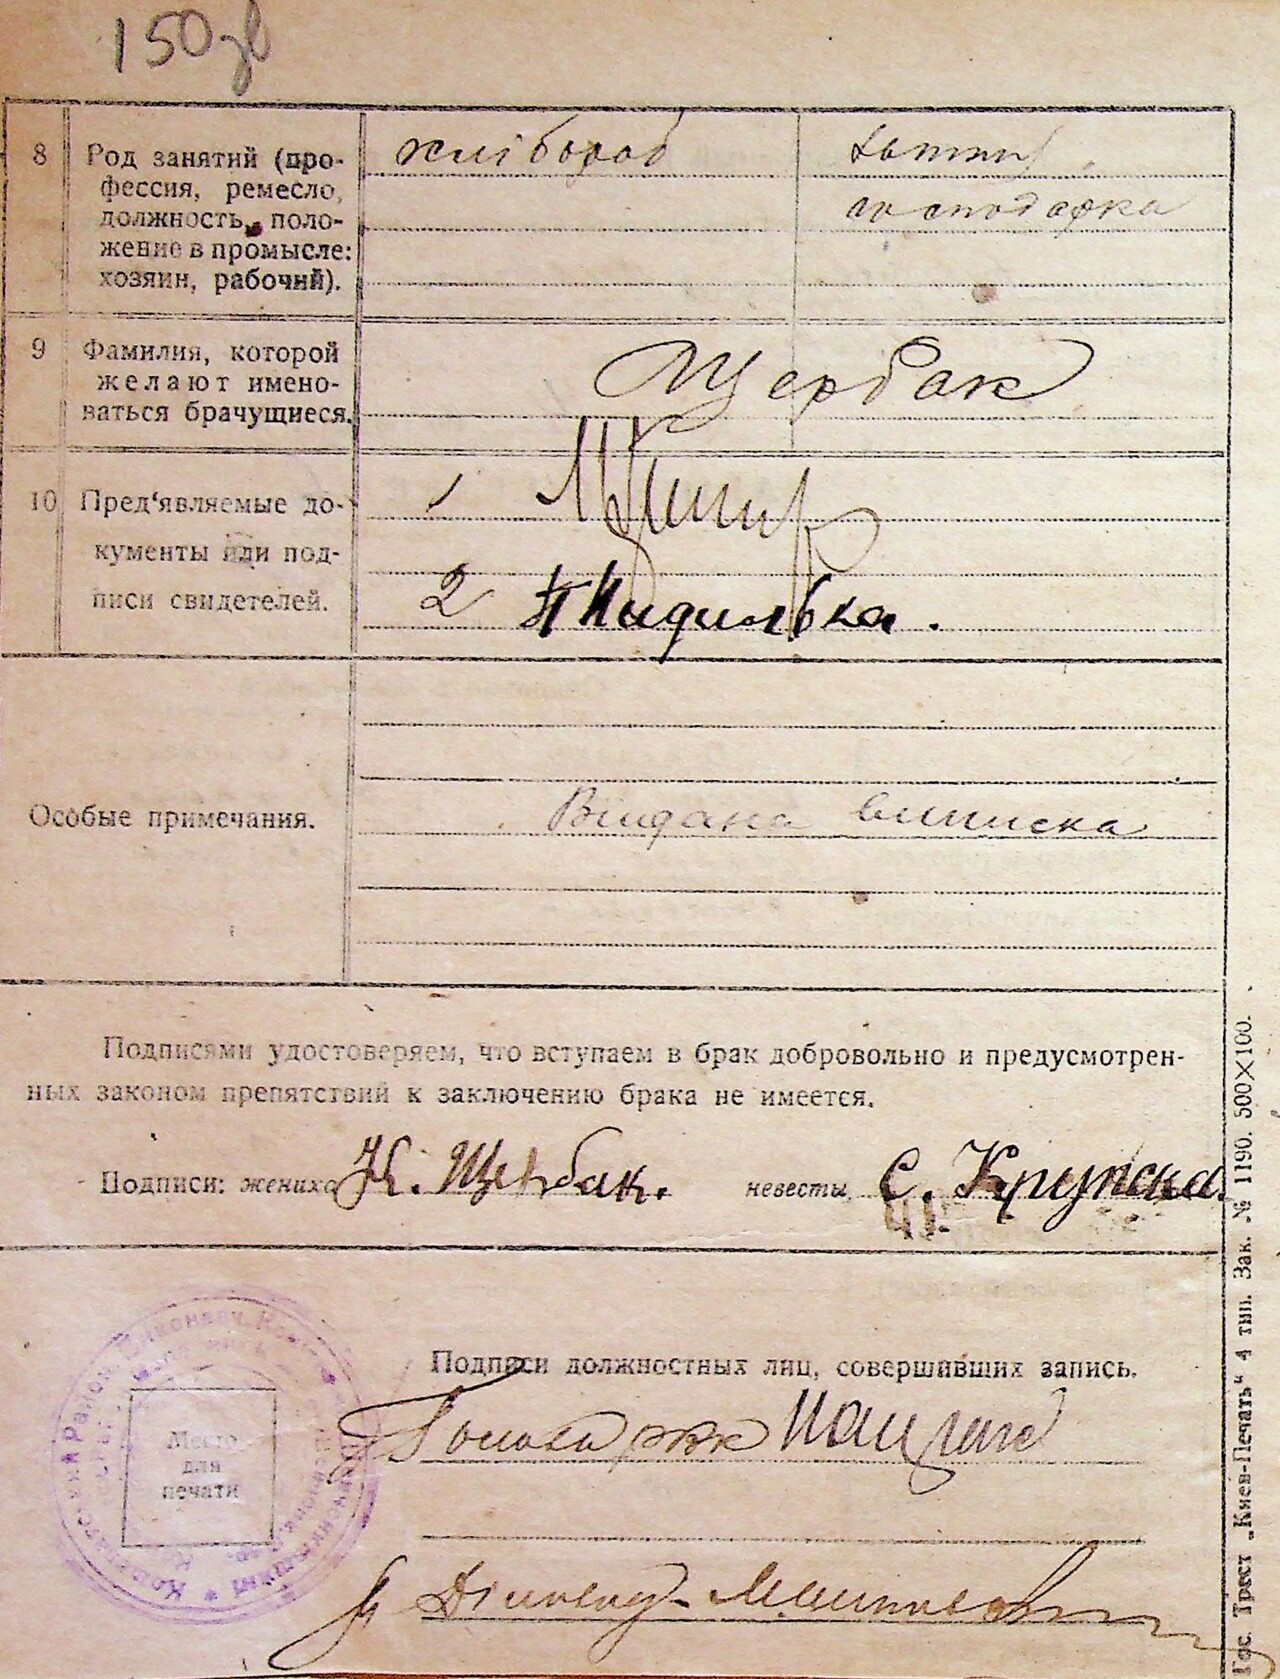 150 зв
8 Род занятий (про-
фессия, ремесло,
должность, поло-
жение в промысле:
хозяин, рабочий).
хлібороб
господарка
9 Фамилия, которой
желают имено-
ваться брачущиеся.
Щербак
10 Пред'являемые до-
кументы или под-
писи свидетелей.
1
2
Особые примечания.
Видана виписка
Подписями удостоверяем, что вступаем в брак добровольно и предусмотрен-
ных законом препятствий к заключению брака не имеется.
Подписи: жениха К. Щербак. невесты С. Крупска.
Подписи должностных лиц, совершивших запись.
Голова РВК
Место
для
печати
Гос. Трест „Киев-Печать" 4 тип. Зак. № 1190. 500×100.